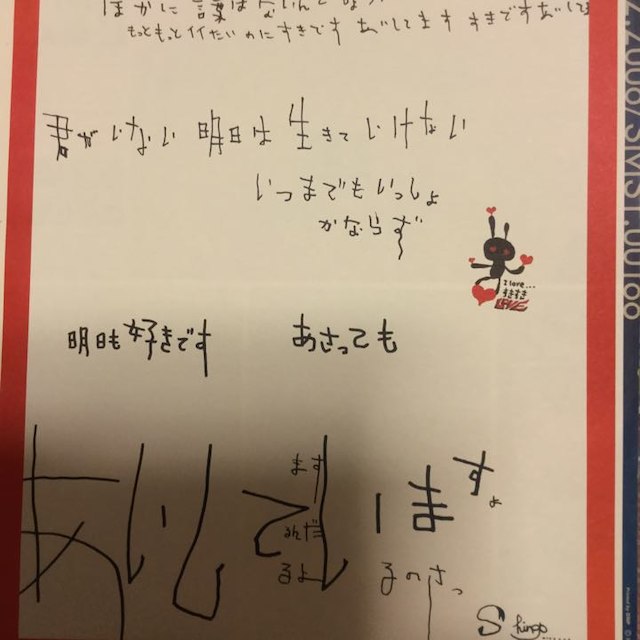 ほかに言葉はないんじょう
もっともっとイイたいのにすきです あいしてます すきですあいしてま
君がいない 明日は 生きて いけない
いつまでもいっしょ
かならず
I love...
すきすき
LOVE
明日も好きです あさっても
あいしています
ます
なんだ
るよ
るのさっ
Shingo